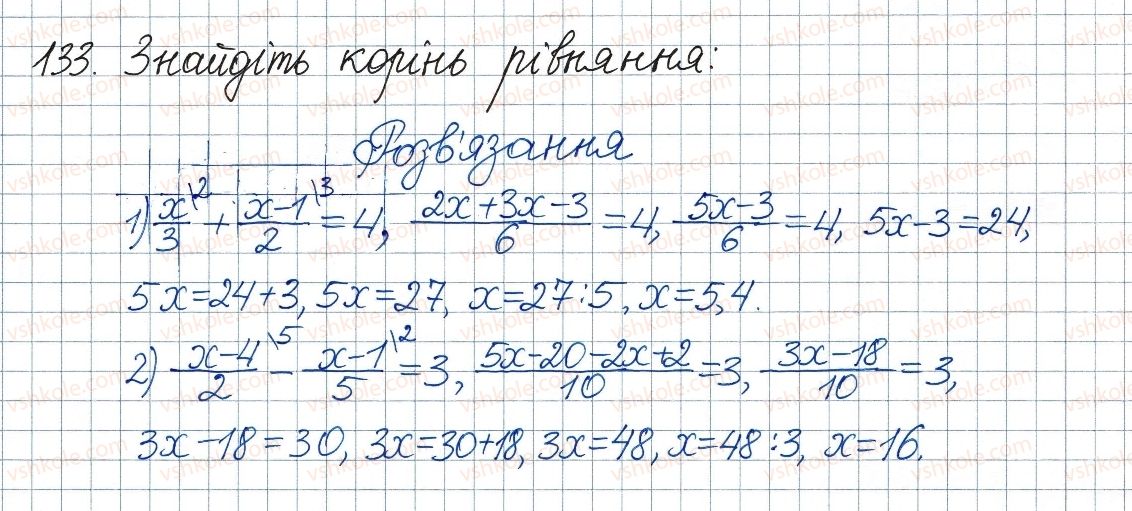 133. Знайдіть корінь рівняння:
Розв'язання
1) x/3 \2 + x-1/2 \3 = 4, 2x+3x-3/6 = 4, 5x-3/6 = 4, 5x-3=24,
5x=24+3, 5x=27, x=27:5, x=5,4.
2) x-4/2 \5 - x-1/5 \2 = 3, 5x-20-2x+2/10 = 3, 3x-18/10 = 3,
3x-18=30, 3x=30+18, 3x=48, x=48:3, x=16.